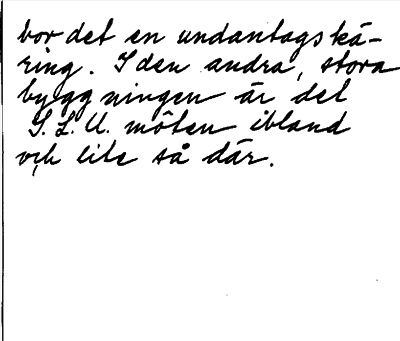 bor det en undantagskä-
ring. I den andra, stora
byggningen är det
S.L.U. möten ibland
och lite så där.